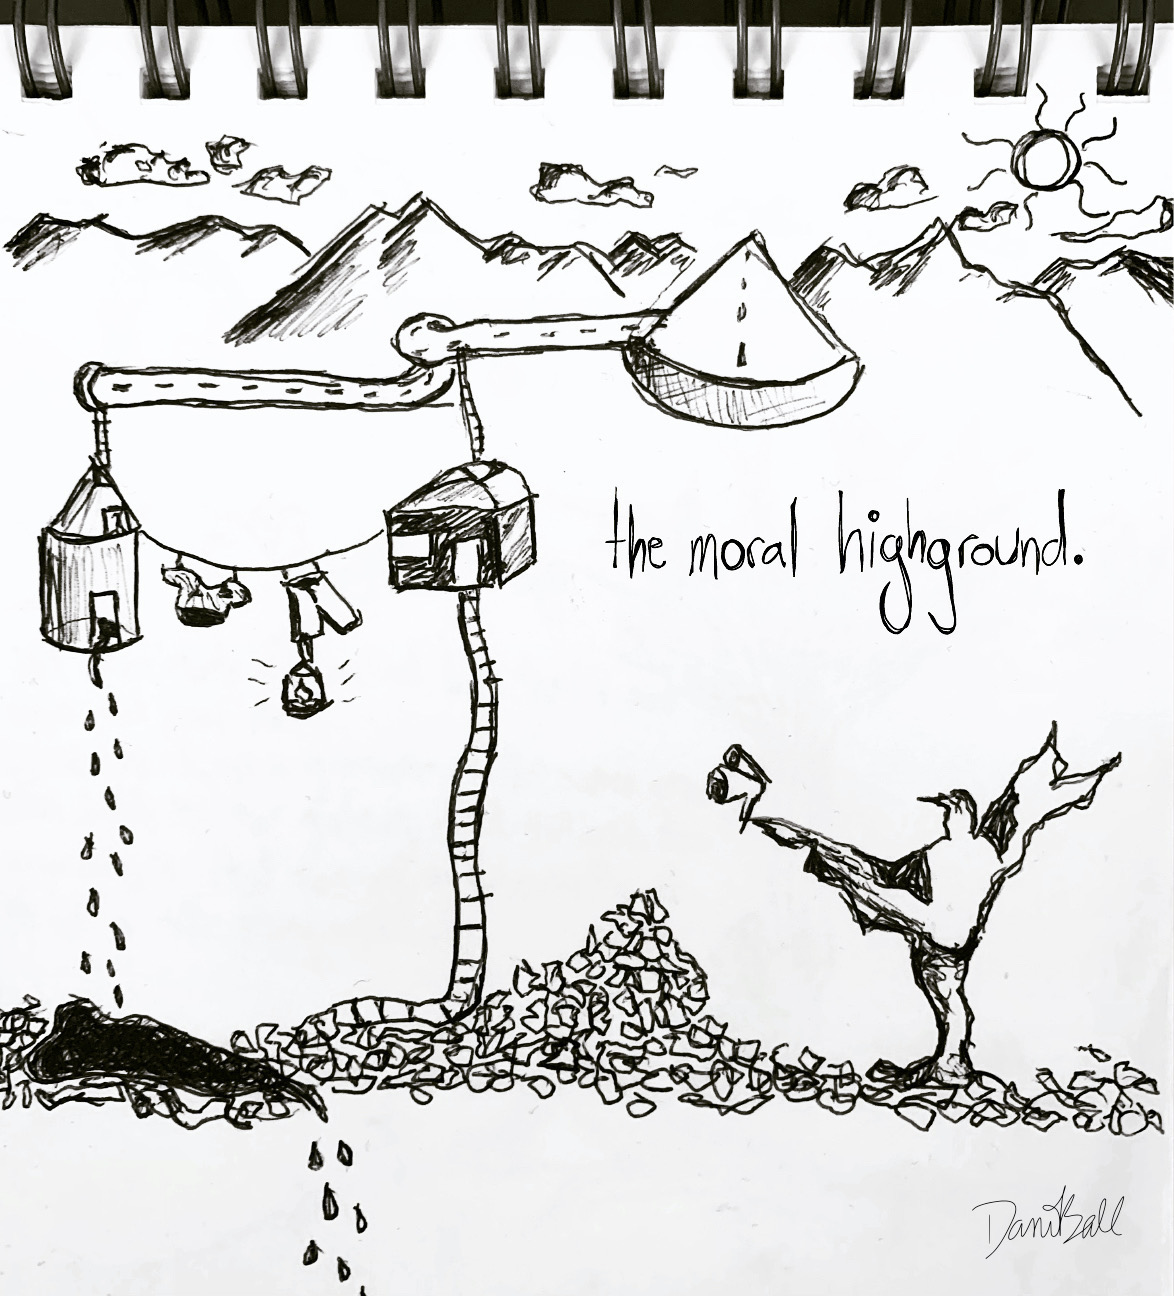 the moral highground.
Dani Ball